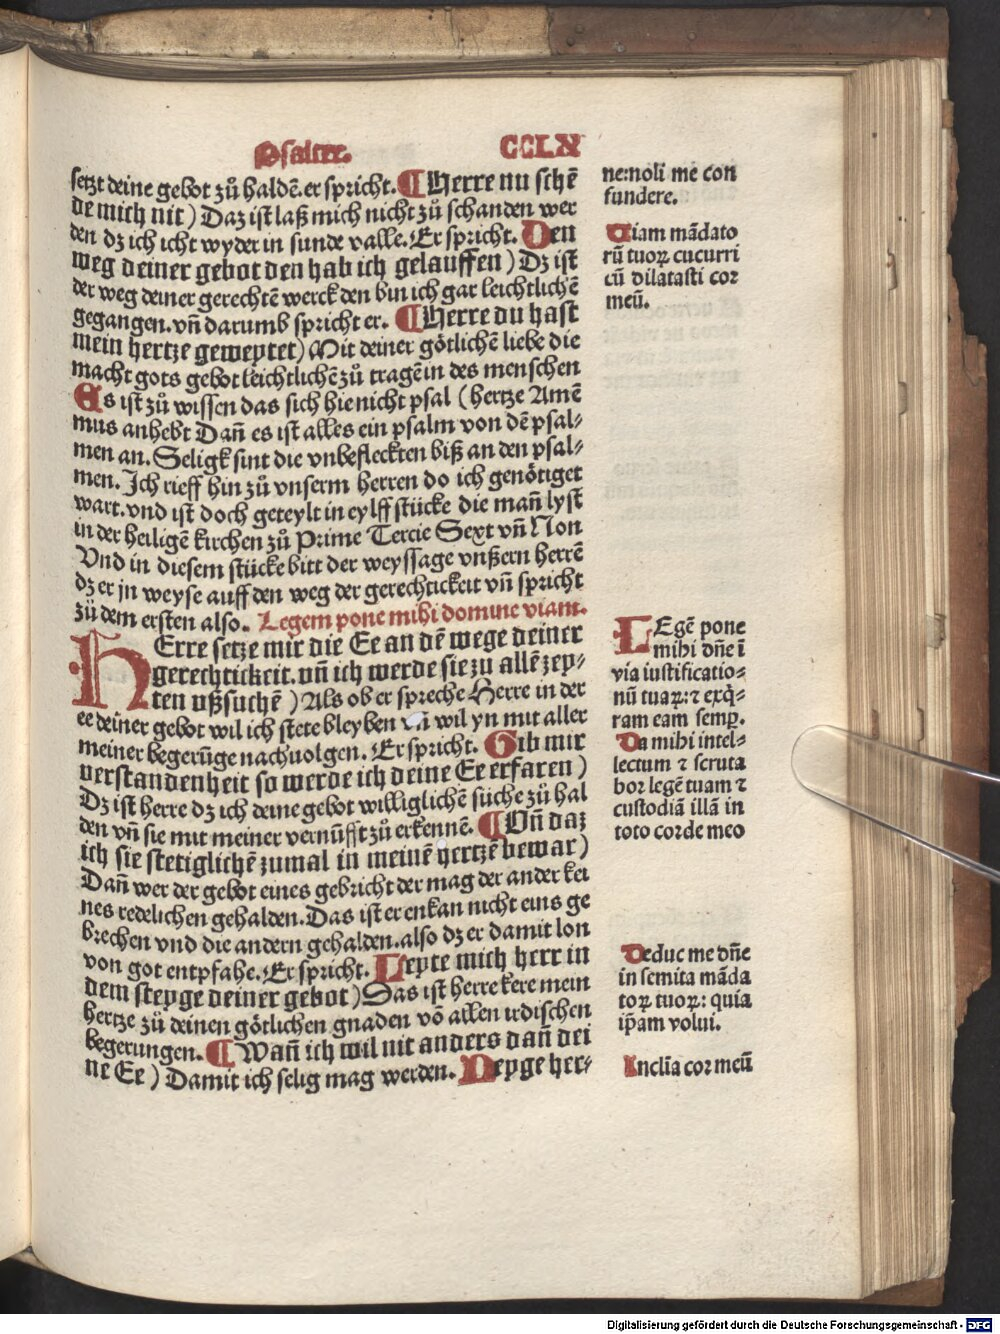 Psalter.
CCLX
setzt deine gebot zů haldē.er spricht. ¶ Herre nu schē
de mich nit) Daz ist laß mich nicht zů schanden wer
den dz ich icht wyder in sunde valle. Er spricht. Den
weg deiner gebot den hab ich gelauffen) Dz ist
der weg deiner gerechtē werck den bin ich gar leichtlichē
gegangen. vñ darumb spricht er. ¶ Herre du hast
mein hertze geweytet) Mit deiner götlichē liebe die
macht gots gebot leichtlichē zů tragē in des menschen
Es ist zů wissen das sich hie nicht psal (hertze Amē
mus anhebt Dañ es ist alles ein psalm von dē psal⸗
men an. Seligk sint die vnbefleckten biß an den psal⸗
men. Ich rieff hin zů vnserm herren do ich genötiget
wart. vnd ist doch geteylt in eylff stücke die mañ lyst
in der heiligē kirchen zů Prime Tercie Sext vñ Non
Vnd in diesem stücke bitt der weyssage vnßern herrē
dz er jn weyse auff den weg der gerechtickeit vñ spricht
zů dem ersten also. Legem pone mihi domine viam.
HErre setze mir die Ee an dē wege deiner
gerechtickeit. vñ ich werde sie zu allē zey⸗
ten vßsuchē) Als ob er spreche Herre in der
ee deiner gebot wil ich stete bleyben vñ wil yn mit aller
meiner begerůge nachuolgen. Er spricht. Gib mir
verstandenheit so werde ich deine Ee erfaren)
Dz ist herre dz ich deine gebot williglichē suche zů hal
den vñ sie mit meiner vernůfft zů erkennē. ¶ Vñ daz
ich sie stetiglichē zumal in meinē hertzē bewar)
Dañ wer der gebot eines gebricht der mag der ander kei
nes redelichen gehalden. Das ist er enkan nicht eins ge
brechen vnd die andern gehalden. also dz er damit lon
von got entpfahe. Er spricht. Leyte mich herr in
dem steyge deiner gebot) Das ist herre kere mein
hertze zů deinen götlichen gnaden vō allen irdischen
begerungen. ¶ Wañ ich wil nit anders dañ dei
ne Ee) Damit ich selig mag werden. Neyge her⸗
ne:noli me con
fundere.
Uiam mādato
rū tuoꝝ cucurri
cū dilatasti cor
meū.
LEgē pone
mihi dn̄e ī
via iustificatio⸗
nū tuaꝝ:⁊ exq̇⸗
ram eam semꝑ.
Da mihi intel⸗
lectum ⁊ scruta
bor legē tuam ⁊
custodiā illā in
toto corde meo
Deduc me dn̄e
in semita māda
toꝝ tuoꝝ: quia
ip̄am volui.
Inclīa cor meū
Digitalisierung gefördert durch die Deutsche Forschungsgemeinschaft - DFG